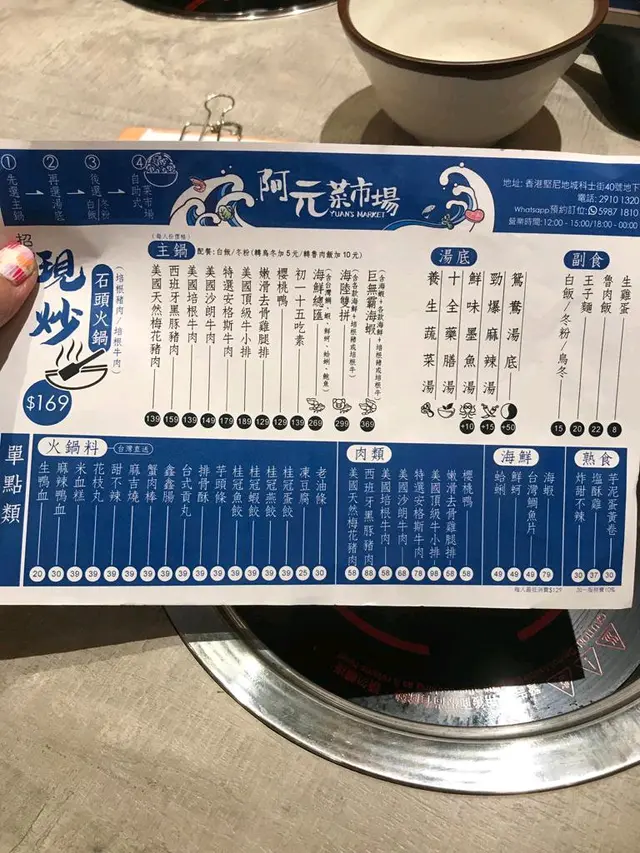 ①先選主鍋
②再選湯底
③後選白飯/冬粉
④自助式菜市場
阿元菜市場
YUAN'S MARKET
地址: 香港堅尼地城科士街40號地下
電話: 2910 1320
Whatsapp預約訂位: 5987 1810
營業時間: 12:00 - 15:00/18:00 - 00:00
超
現炒
石頭火鍋
(培根豬肉/培根牛肉)
$169
(每人份價格)
主鍋
配餐:白飯/冬粉(轉烏冬加5元/轉魯肉飯加10元)
美國天然梅花豬肉 139
西班牙黑豚豬肉 159
美國培根牛肉 139
美國沙朗牛肉 149
特選安格斯牛肉 179
美國頂級牛小排 189
嫩滑去骨雞腿排 129
櫻桃鴨 139
初一十五吃素 129
海鮮總匯 269
(含台灣鯛、蝦、鮮蚵、蛤蜊、鮑魚)
海陸雙拼 299
(含各款海鮮+培根豬或培根牛)
巨無霸海蝦 369
(含海蝦+各款海鮮+培根豬或培根牛)
湯底
養生蔬菜湯
十全藥膳湯
鮮味墨魚湯 +10
勁爆麻辣湯 +15
鴛鴦湯底 +50
副食
白飯/冬粉/烏冬 15
王子麵 20
魯肉飯 22
生雞蛋 8
單點類
火鍋料
台灣直送
生鴨血 20
麻辣鴨血 30
米血糕 39
花枝丸 39
甜不辣 39
麻吉燒 39
蟹肉棒 39
鑫鑫腸 39
台式貢丸 39
排骨酥 39
芋頭條 39
桂冠魚餃 39
桂冠蝦餃 39
桂冠燕餃 39
桂冠蛋餃 39
凍豆腐 25
老油條 30
肉類
美國天然梅花豬肉 58
西班牙黑豚豬肉 88
美國培根牛肉 58
美國沙朗牛肉 68
特選安格斯牛肉 78
美國頂級牛小排 98
嫩滑去骨雞腿排 58
櫻桃鴨 58
海鮮
蛤蜊 49
鮮蚵 49
台灣鯛魚片 49
海蝦 79
熟食
炸甜不辣 30
塩酥雞 37
芋泥蛋黃卷 30
每人最低消費$129
加一服務費10%